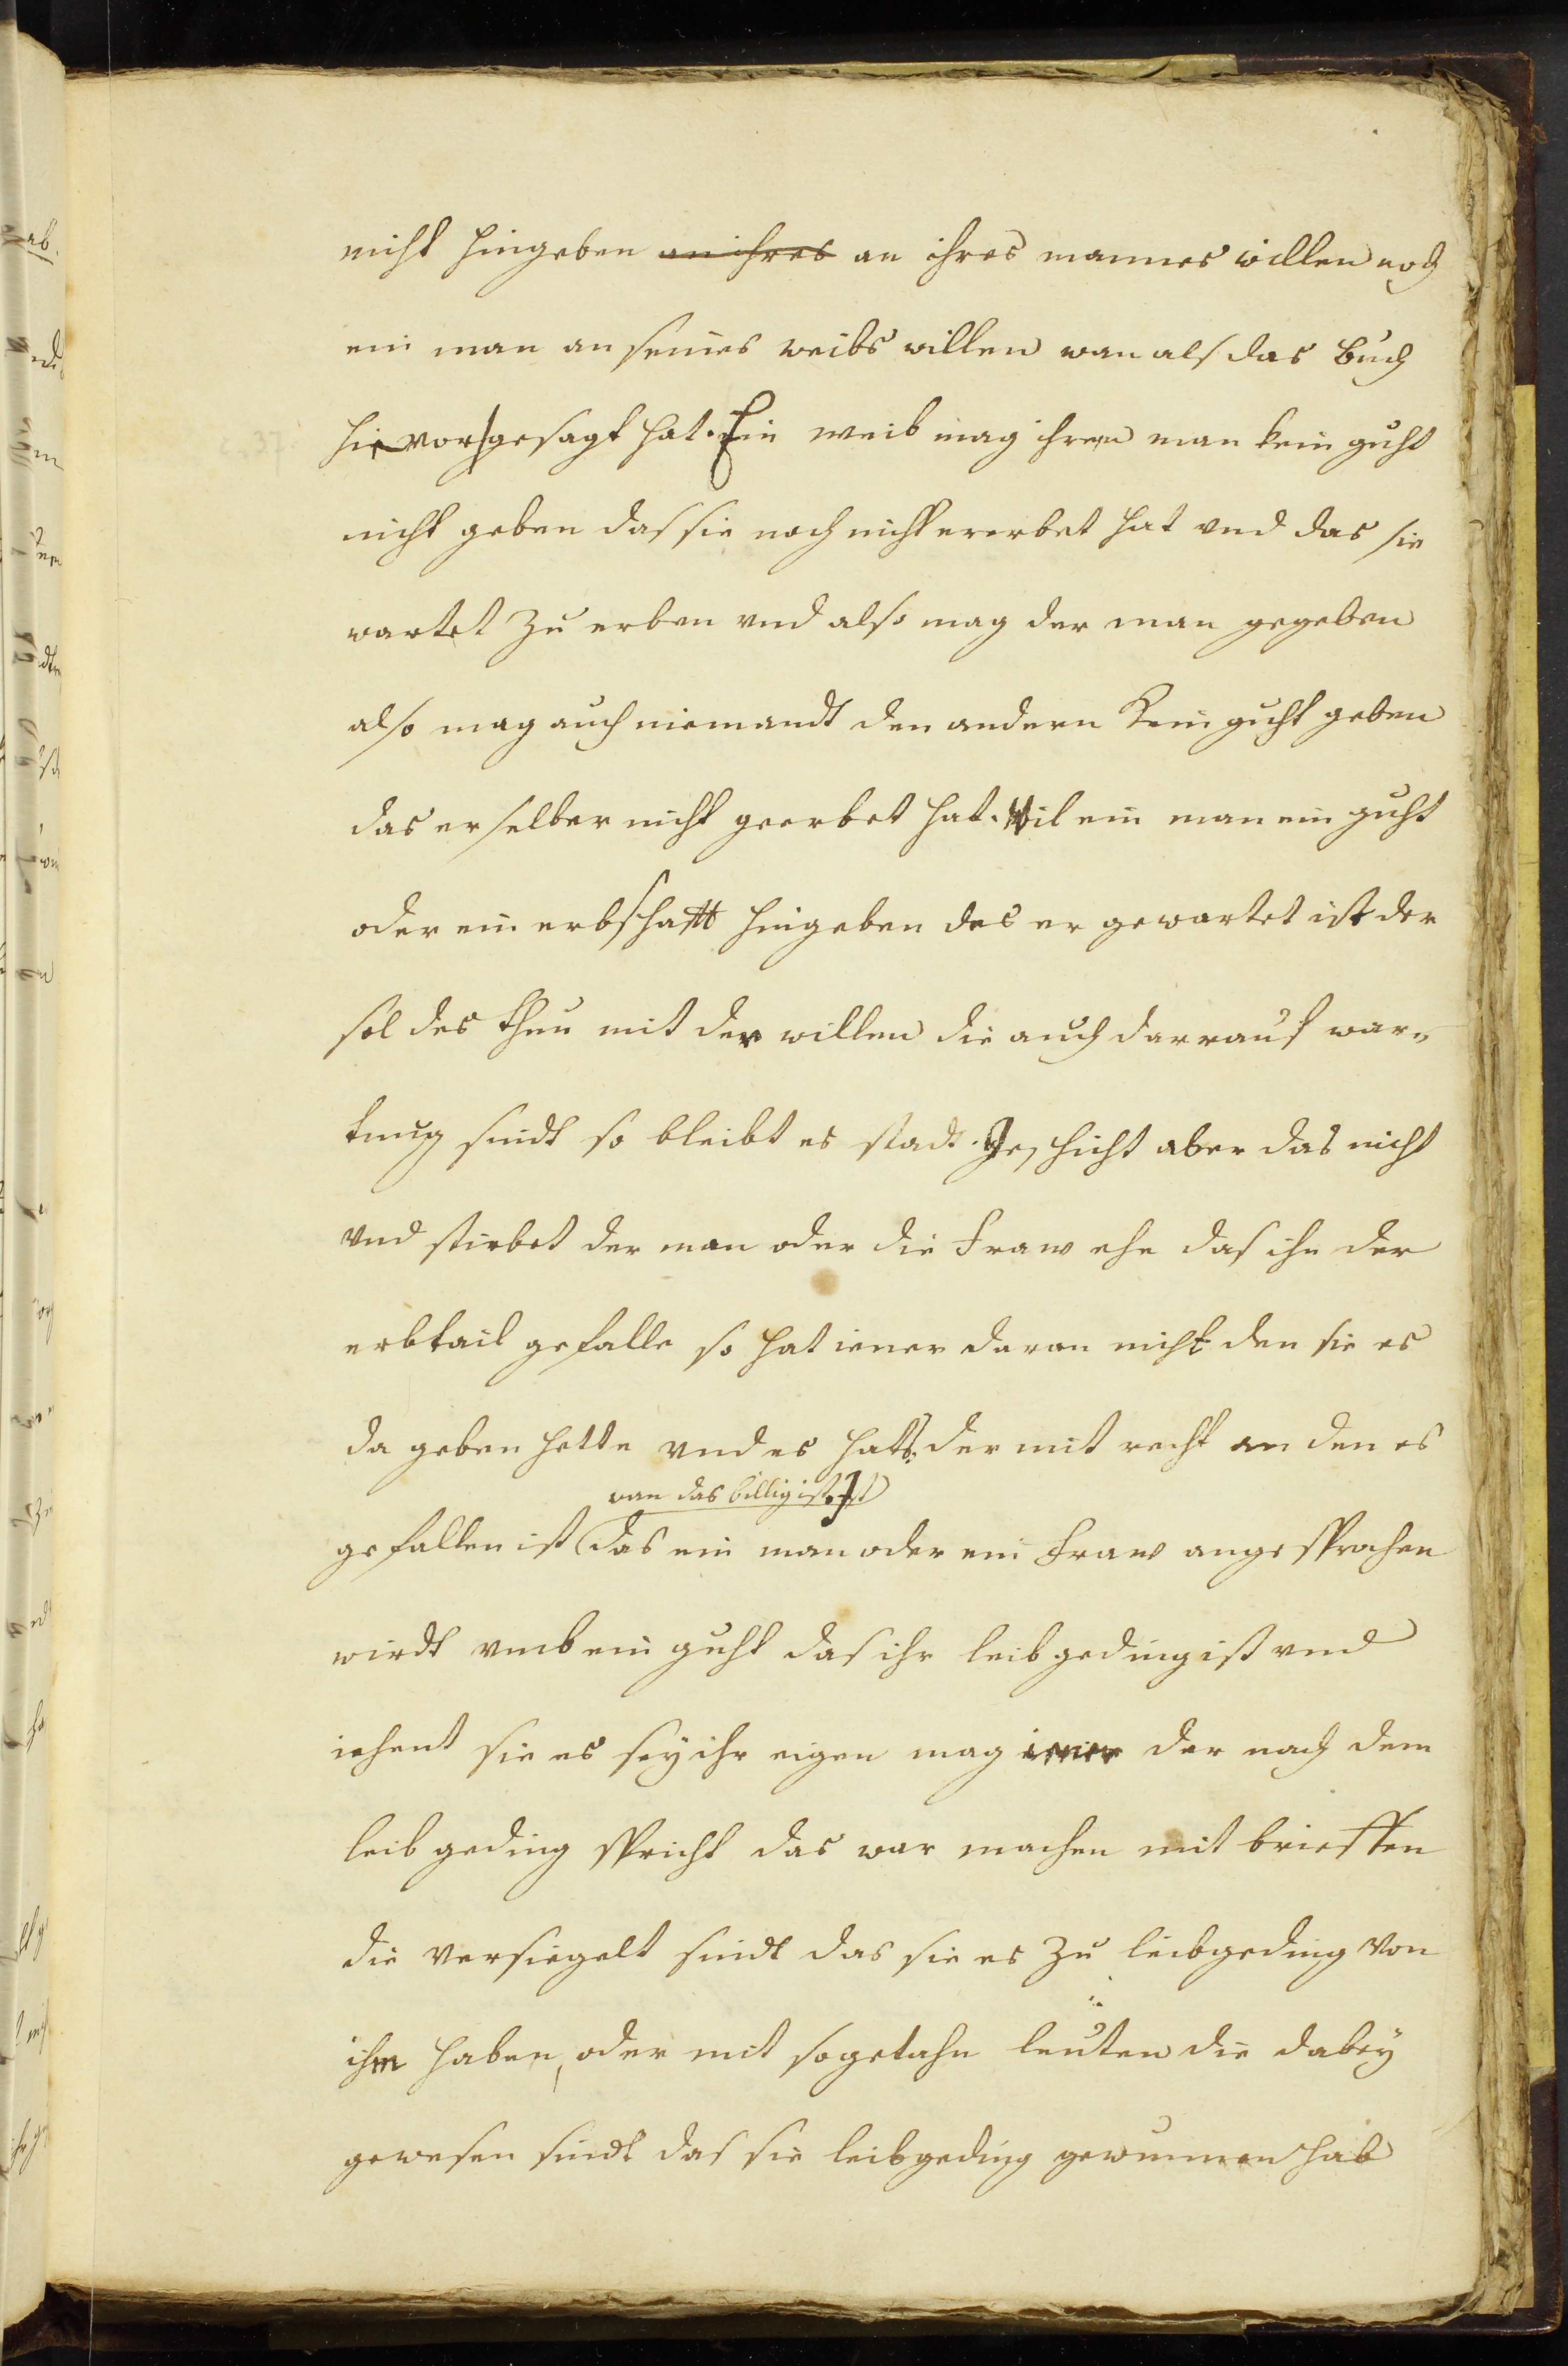 nicht hingeben an ihres an ihres mannes willen noch
ein man an seines weibs willen wan als das buch
hievor gesagt hat. Ein weib mag ihrem man kein guht
nicht geben das sie noch nicht ererbet hat vnd das sie
wartet zu erben vnd also mag der man gegeben
also mag auch niemandt den andern kein guht geben
das er selber nicht geerbet hat. Wil ein man ein guht
oder ein erbschafft hingeben des er gewartet ist der
sol des thun mit der willen die auch darrauf war„
tung sindt so bleibt es stadt. Geschicht aber das nicht
vnd stirbet der man oder die fraw ehe das ihn der
erbtail gefalle so hat iener daran nicht den sie es
da geben hette vnd es hats der mit recht an den es
wan das billig ist. Ist
gefallen ist das ein man oder ein fraw angesprochen
wirdt vmb ein guht das ihr leibgeding ist vnd
iehent sie es sey ihr eigen mag iener der nach dem
leib geding spricht das war machen mit brieffen
die versiegelt sindt das sie es zu leibgeding von
ihm haben, oder mit sogetahn leuten die dabey
gewesen sindt das sie leibgeding gewunnen hab